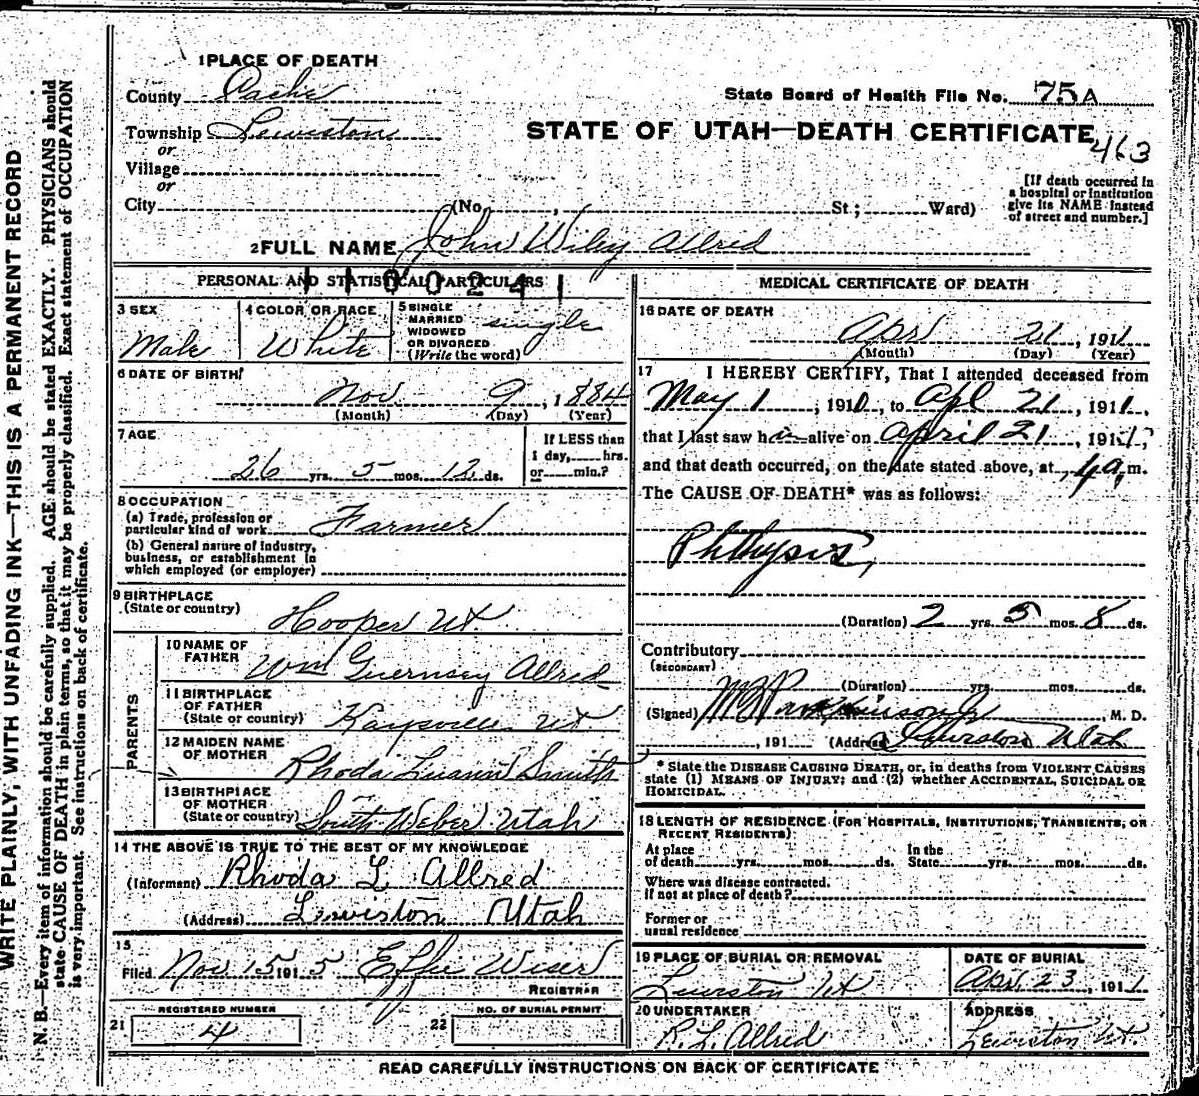 WRITE PLAINLY, WITH UNFADING INK—THIS IS A PERMANENT RECORD
N. B.—Every item of information should be carefully supplied. AGE should be stated EXACTLY. PHYSICIANS should
state CAUSE OF DEATH in plain terms, so that it may be properly classified. Exact statement of OCCUPATION
is very important. See instructions on back of certificate.
1 PLACE OF DEATH
County Cache
State Board of Health File No. 75A
Township Lewiston
STATE OF UTAH—DEATH CERTIFICATE 463
or
Village
or
City (No. , St.; Ward)
[If death occurred in
a hospital or institution
give its NAME instead
of street and number.]
2 FULL NAME John Wiley Allred
PERSONAL AND STATISTICAL PARTICULARS
1100241
3 SEX
Male
4 COLOR OR RACE
White
5 SINGLE
MARRIED
WIDOWED
OR DIVORCED
(Write the word)
single
6 DATE OF BIRTH
Nov 9, 1884
(Month) (Day) (Year)
7 AGE
26 yrs. 5 mos. 12 ds.
If LESS than
1 day, hrs.
or min.?
8 OCCUPATION
(a) Trade, profession or
particular kind of work Farmer
(b) General nature of industry,
business, or establishment in
which employed (or employer)
9 BIRTHPLACE
(State or country) Hooper Ut.
PARENTS
10 NAME OF
FATHER Wm Guernsey Allred
11 BIRTHPLACE
OF FATHER
(State or country) Kaysville Ut
12 MAIDEN NAME
OF MOTHER Rhoda Luann Smith
13 BIRTHPLACE
OF MOTHER
(State or country) South Weber Utah
14 THE ABOVE IS TRUE TO THE BEST OF MY KNOWLEDGE
(Informant) Rhoda L Allred
(Address) Lewiston Utah
15
Filed Nov 15 191 5 Effie Wiser
REGISTRAR
REGISTERED NUMBER
21 4
NO. OF BURIAL PERMIT
22
MEDICAL CERTIFICATE OF DEATH
16 DATE OF DEATH
Apr 21, 1911
(Month) (Day) (Year)
17 I HEREBY CERTIFY, That I attended deceased from
May 1, 1910, to Apl 21, 1911,
that I last saw him alive on April 21, 1911,
and that death occurred, on the date stated above, at 4 a. m.
The CAUSE OF DEATH* was as follows:
Phthysis,
(Duration) 2 yrs. 5 mos. 8 ds.
Contributory
(SECONDARY)
(Duration) yrs. mos. ds.
(Signed) Parkinson Jr, M. D.
, 191 (Address) Lewiston Utah
* State the DISEASE CAUSING DEATH, or, in deaths from VIOLENT CAUSES
state (1) MEANS OF INJURY; and (2) whether ACCIDENTAL, SUICIDAL OR
HOMICIDAL.
18 LENGTH OF RESIDENCE (FOR HOSPITALS, INSTITUTIONS, TRANSIENTS, OR
RECENT RESIDENTS)
At place
of death yrs. mos. ds.
In the
State yrs. mos. ds.
Where was disease contracted.
If not at place of death?
Former or
usual residence
19 PLACE OF BURIAL OR REMOVAL
Lewiston Ut
DATE OF BURIAL
Apr. 23, 1911
20 UNDERTAKER
R. L. Allred
ADDRESS
Lewiston Ut.
READ CAREFULLY INSTRUCTIONS ON BACK OF CERTIFICATE